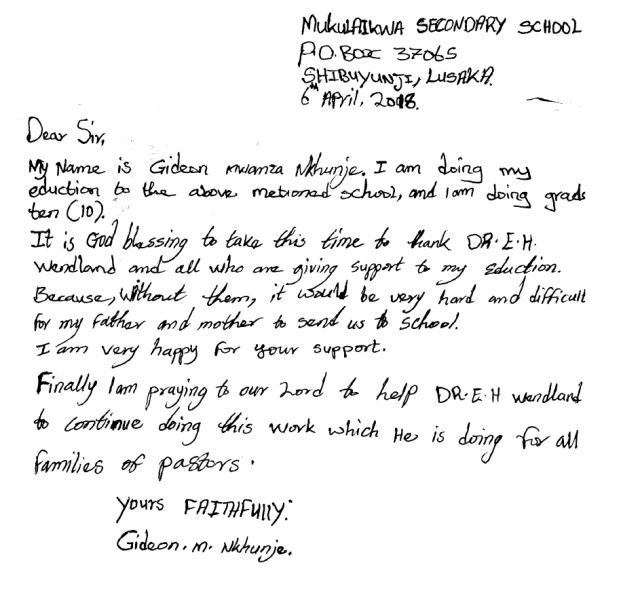 MUKULAIKWA SECONDARY SCHOOL
P.O. BOX 37065
SHIBUYUNJI, LUSAKA.
6th April, 2018.
Dear Sir,
My Name is Gideon mwanza Nkhunje. I am doing my
eduction to the above metioned school, and I am doing grade
ten (10).
It is God blessing to take this time to thank DR. E. H.
Wendland and all who are giving support to my eduction.
Because, Without them, it would be very hard and difficult
for my Father and mother to send us to School.
I am very happy for your support.
Finally I am praying to our Lord to help DR. E. H wendland
to continue doing this work which He is doing for all
families of pastors.
yours FAITHFULLY:
Gideon. m. Nkhunje.